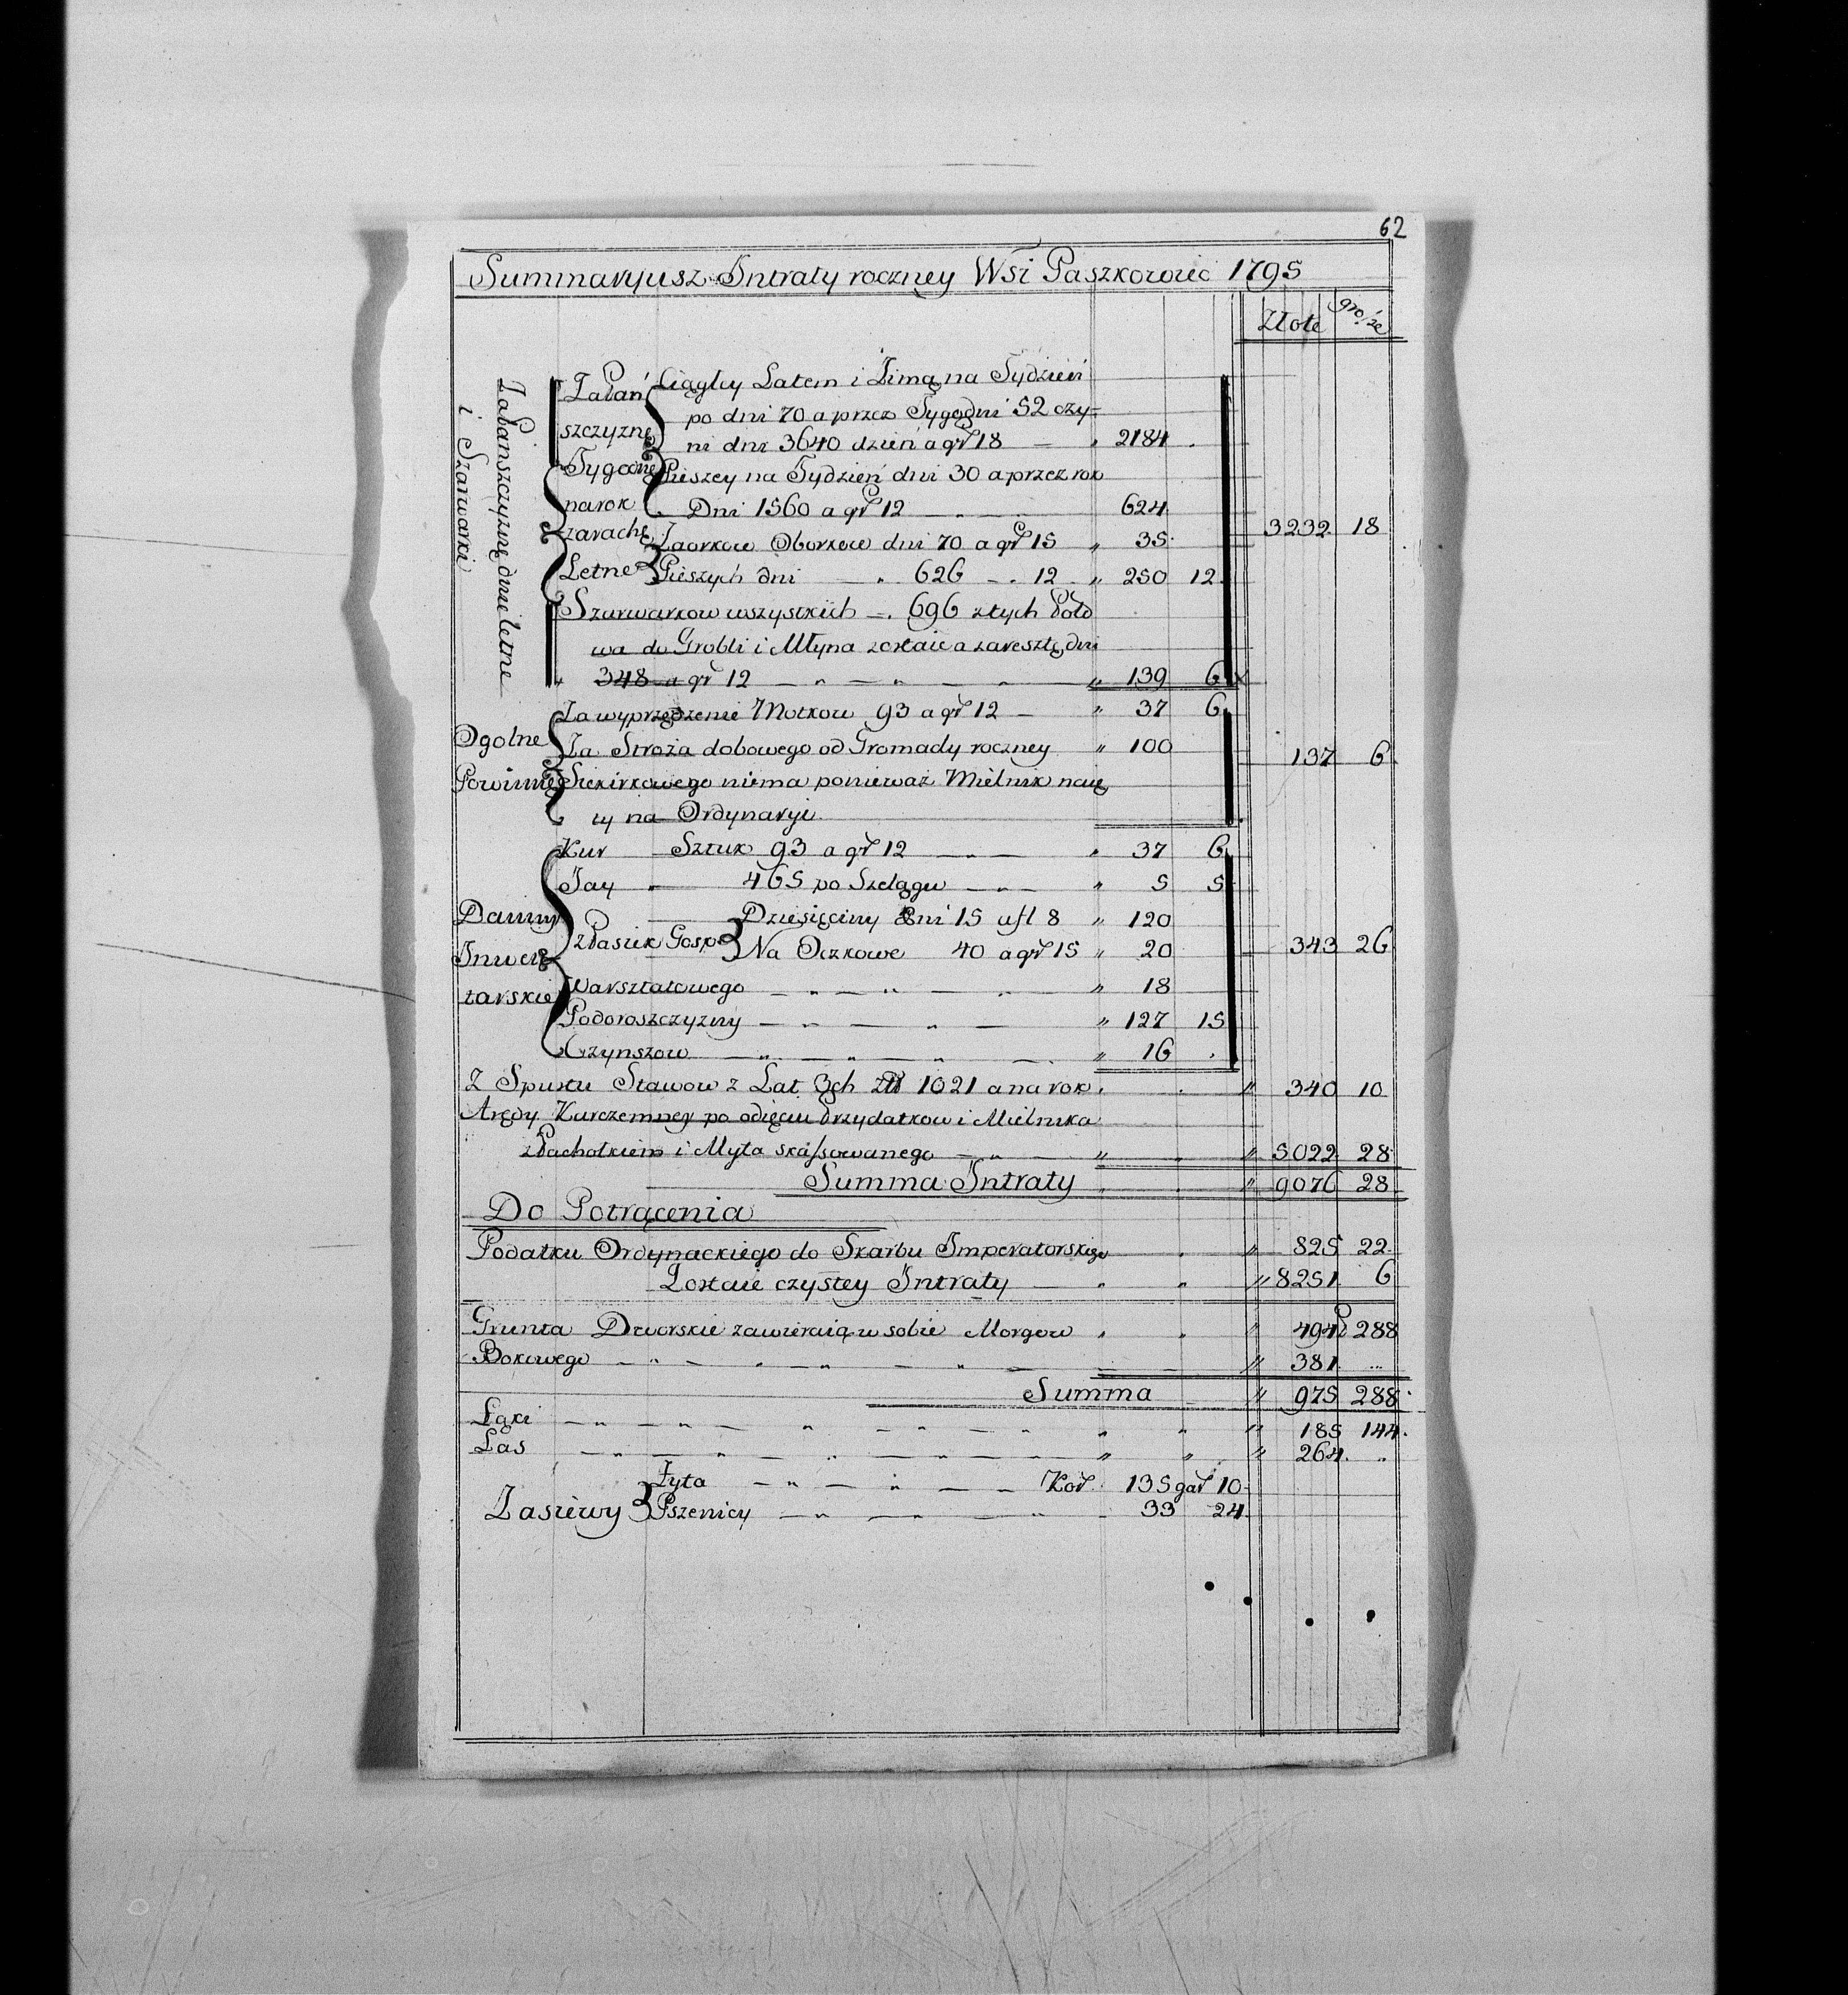 62
Summaryusz Intraty roczney Wsi Paszkowiec 1795
Złote gro/ze
Za Pańszczyznę dnie letne
i Szarwarki
Za Pań
szczyznę
Tygodnę
na rok
za rachę
Letne
Ciągłey Latem i Zimą na Tydzień
po dni 70 a przez Tygodni 52 czy-
ni dni 3640 dzień a gr 18 — „ 2184 .
Pieszey na Tydzień dni 30 a przez rok
Dni 1560 a gr 12 — „ — 624
3232 18
Zaorkow Oborkow dni 70 a gr 15 „ 35
Pieszych dni — „ 626 — „ 12 „ 250 12
Szarwarkow wszystkich — „ 696 z tych Poło
wa do Grobli i Młyna zostaie a zaresztę dni
„ 348 a gr 12 — „ — „ — „ — „ 139 6
Ogolne
Powinne
Za wyprzędzenie Motkow 93 a gr 12 — „ 37 6
Za Stroża dobowego od Gromady roczney „ 100
137 6
Siekirkowego niema ponieważ Mielnik
ty na Ordynaryi
Daniny
Inwen
tarskie
Kur — Sztuk 93 a gr 12 — „ — „ 37 6
Jay „ — 465 po Szelągu — „ — „ 5 5
z Pasiek Gosp
Dziesięciny Pni 15 a fl 8 „ 120
Na Oczkowe 40 a gr 15 „ 20
343 26
Warsztatowego — „ — „ — „ — „ 18
Podoroszczyzny — „ — „ — „ 127 15
Czynszow — „ — „ — „ — „ 16 .
Z Spustu Stawow z Lat 3ch złł 1021 a na rok „ „ 340 10
Arędy Karczemney po odięciu Przydatkow i Mielnika
z Pachołkiem i Myta ska/sowanego — „ — „ „ 5022 28
Summa Intraty „ „ 9076 28
Do Potrącenia
Podatku Ordynackiego do Skarbu Imperatorskiego „ „ 825 22
Zostaie czystey Intraty — „ „ „ 8251 6
Grunta Dworskie zawieraią w sobie Morgow „ „ „ 494 P 288
Bokowego — „ — „ — „ — „ — „ 381 ...
Summa „ 975 288
Łąki — „ — „ — „ — „ — „ „ „ „ 185 144
Las — „ — „ — „ — „ — „ „ „ 264 „
Zasiewy
Żyta — „ — „ — Kor. 135 gar 10
Pszenicy — „ — „ — „ — 33 24